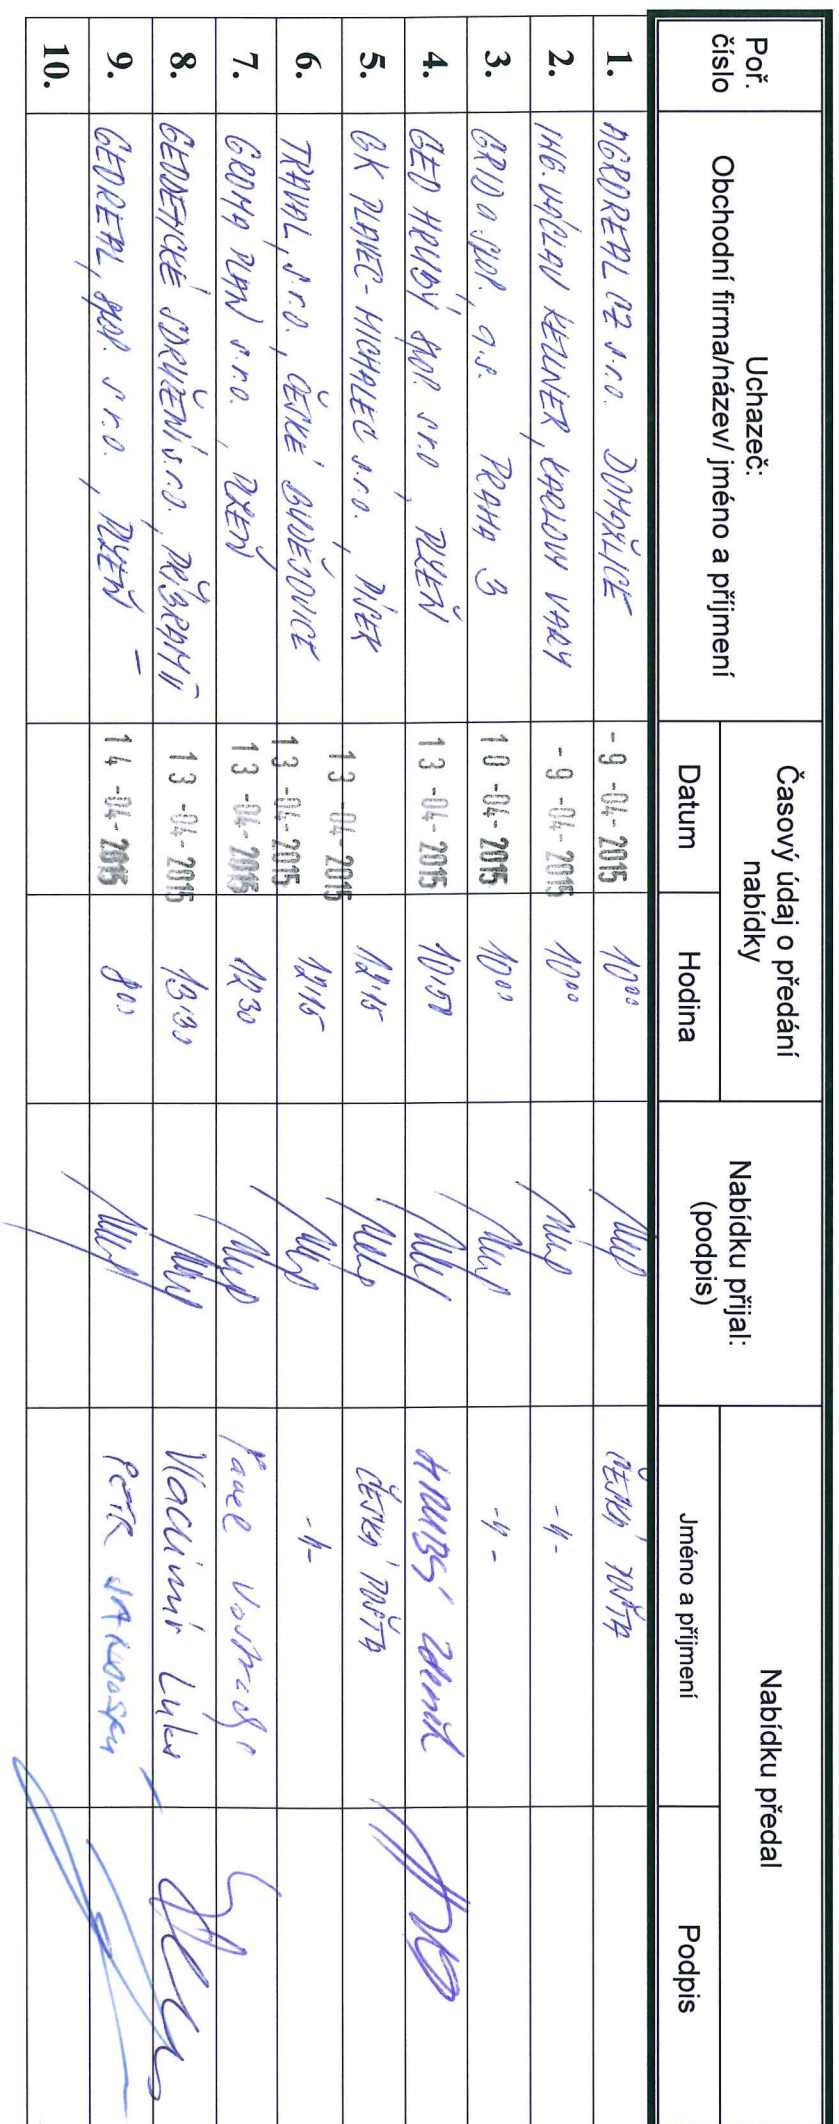 Poř. číslo | Uchazeč: Obchodní firma/název/ jméno a příjmení | Časový údaj o předání nabídky | Nabídku přijal: (podpis) | Nabídku předal
Datum | Hodina | Jméno a příjmení | Podpis
1. | AGROREAL CZ s.r.o. DOMAŽLICE | - 9 -04- 2015 | 10⁰⁰ | ČESKÁ POŠTA
2. | ING. VÁCLAV KELLNER, KARLOVY VARY | - 9 -04- 2015 | 10⁰⁰ | -"-
3. | GRID a spol. a.s. PRAHA 3 | 10 -04- 2015 | 10⁰⁰ | -"-
4. | GEO HRUBÝ spol. s r.o., PLZEŇ | 13 -04- 2015 | HRUBÝ Zdeněk
5. | GK PLAVEC-MICHALEC s.r.o., PÍSEK | 13 -04- 2015 | 12:15 | ČESKÁ POŠTA
6. | TRAVAL, s.r.o., ČESKÉ BUDĚJOVICE | 13 -04- 2015 | 12:15 | -"-
7. | GROMA PLAN s.r.o., PLZEŇ | 13 -04- 2015 | 12:30 | Pavel
8. | GEODETICKÉ SDRUŽENÍ s.r.o., PŘÍBRAM II | 13 -04- 2015 | 13:30 | Vladimír Luks
9. | GEOREAL, spol. s r.o., PLZEŇ | 14 -04- 2015 | 8⁰⁰ | PETR
10.